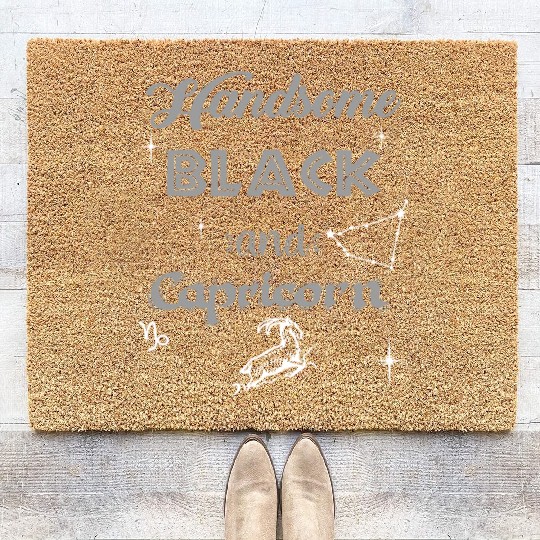 Handsome
BLACK
and
Capricorn
♑